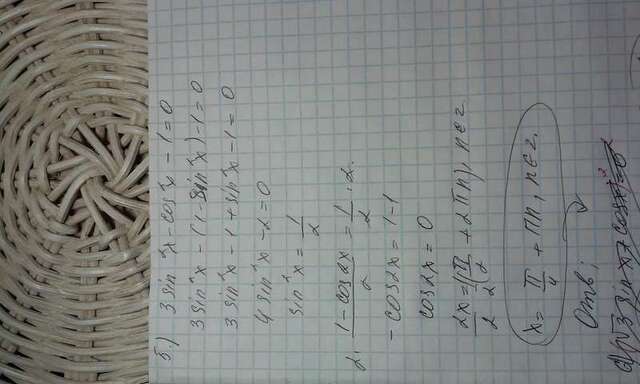 б.) 3 sin²x - cos²x - 1 = 0
3 sin²x - (1 - sin²x) - 1 = 0
3 sin²x - 1 + sin²x - 1 = 0
4 sin²x - 2 = 0
sin²x = 1/2
2. (1 - cos2x)/2 = 1/2 · 2.
- cos2x = 1 - 1
cos2x = 0
2x/2 = (π/2 + 2πn)/2, n ∈ z.
x = π/4 + πn, n ∈ z.
Отв: